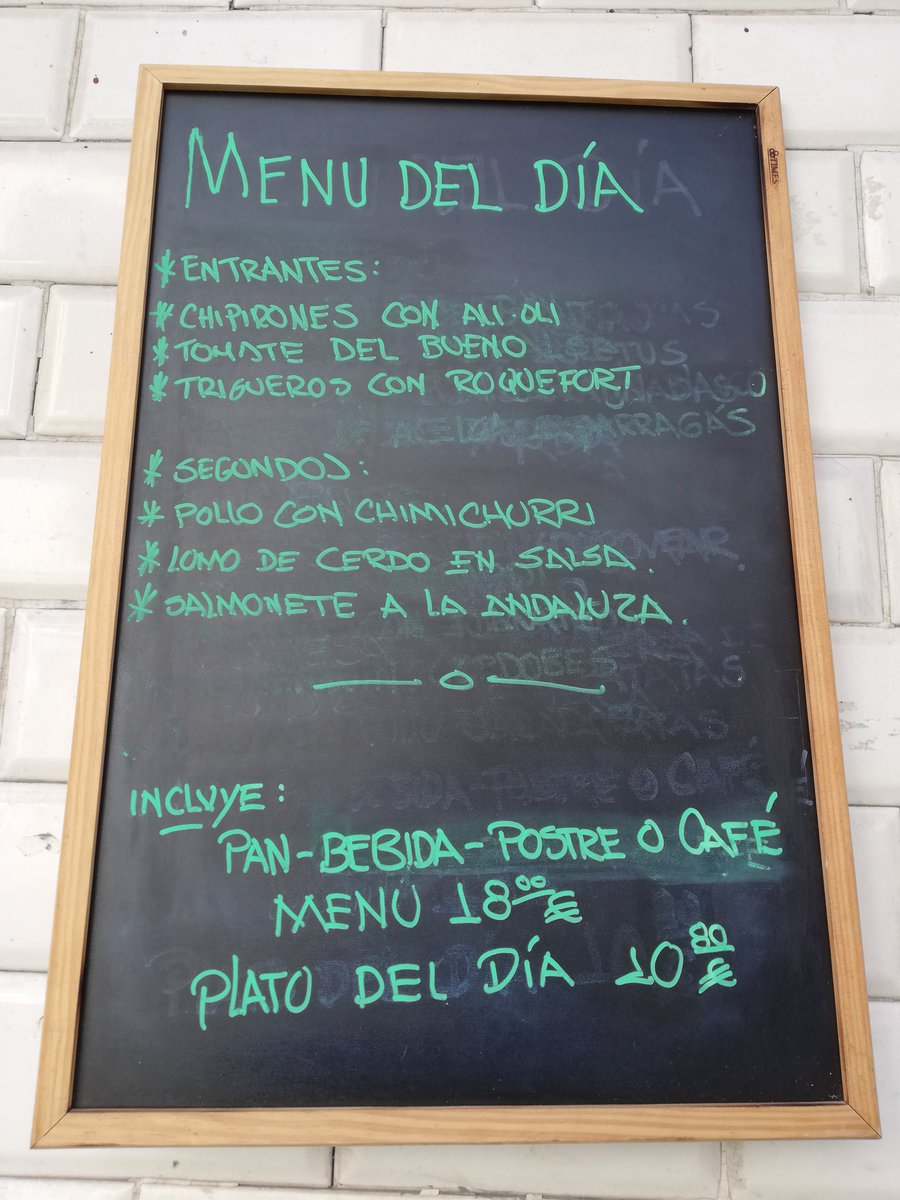 MENU DEL DÍA
* ENTRANTES:
* CHIPIRONES CON ALI·OLI
* TOMATE DEL BUENO
* TRIGUEROS CON ROQUEFORT
* SEGUNDOS:
* POLLO CON CHIMICHURRI
* LOMO DE CERDO EN SALSA.
* SALMONETE A LA ANDALUZA.
INCLUYE:
PAN-BEBIDA-POSTRE O CAFÉ
MENÚ 18⁰⁰€
PLATO DEL DÍA 10⁸⁰€